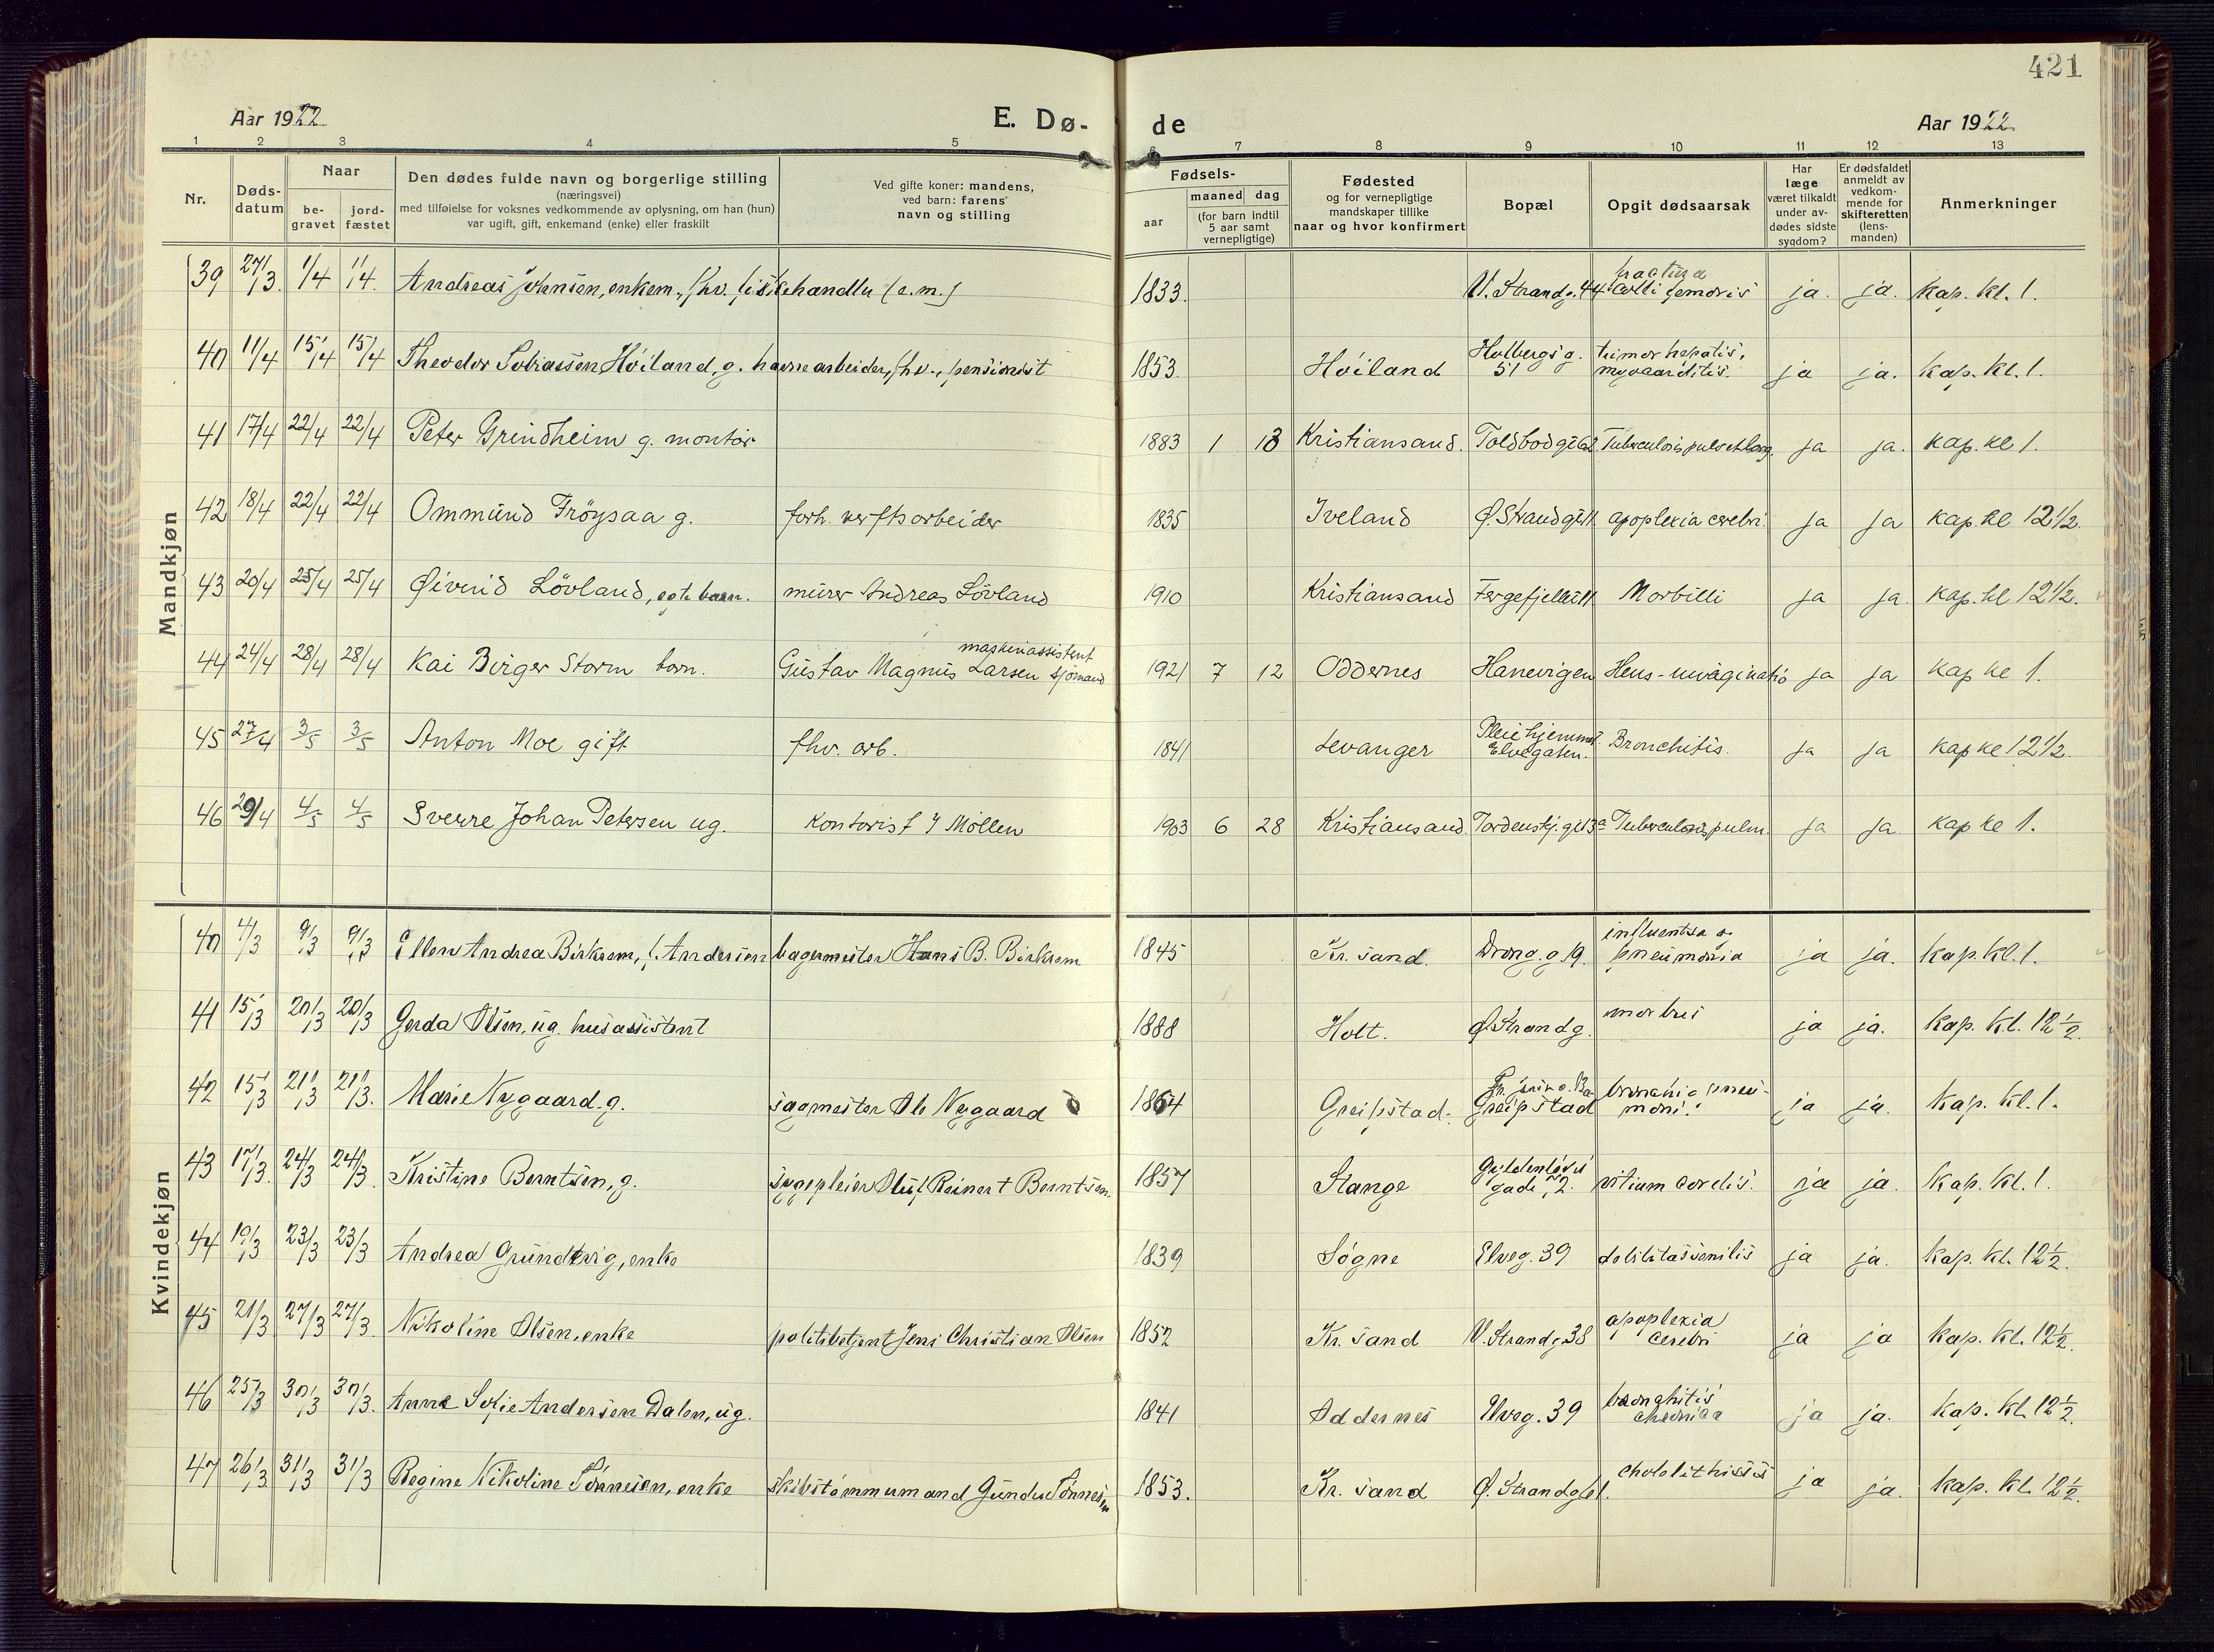 421
Aar 1922
E. Dø-
de
Aar 1922
1 2 3 4 5 6 7 8 9 10 11 12 13
Nr.
Døds-
datum
Naar
be-
gravet
jord-
fæstet
Den dødes fulde navn og borgerlige stilling
(næringsvei)
med tilføielse for voksnes vedkommende av oplysning, om han (hun)
var ugift, gift, enkemand (enke) eller fraskilt
Ved gifte koner: mandens,
ved barn: farens
navn og stilling
Fødsels-
aar
maaned dag
(for barn indtil
5 aar samt
vernepligtige)
Fødested
og for vernepligtige
mandskaper tillike
naar og hvor konfirmert
Bopæl
Opgit dødsaarsak
Har
læge
været tilkaldt
under av-
dødes sidste
sygdom?
Er dødsfaldet
anmeldt av
vedkom-
mende for
skifteretten
(lens-
manden)
Anmerkninger
Mandkjøn
39 27/3 1/4 1/4 Andreas Johnsen, enkem., fhv. fiskehandler (e.m.) 1833. V. Strandg. 44 fractura colli femoris ja. ja. Kap. kl. 1.
40 11/4 15/4 15/4 Theodor Tobiassen Höiland, g. havnearbeider, fhv., pensionist 1853. Höiland Holbergs g. 51 tumor hepatis, myocarditis. ja ja. Kap. kl. 1.
41 17/4 22/4 22/4 Peter Grindheim g. montör 1883 1 13 Kristiansand. Toldbodgt 62 Tuberculosis pulm et laryng. ja ja. Kap. kl 1.
42 18/4 22/4 22/4 Ommund Fröysaa g. forh. verftsarbeider 1835 Iveland Ø. Strandgt 11 apoplexia cerebri. ja ja Kap. kl 12 1/2.
43 20/4 25/4 25/4 Øivind Lövland, egte barn. murer Andreas Lövland 1910 Kristiansand Fergefjellet 11 Morbilli ja ja. Kap. kl 12 1/2.
44 24/4 28/4 28/4 Kai Birger Storm barn. maskinassistent Gustav Magnus Larsen sjömand 1921 7 12 Oddernes Hanevigen Ileus-invaginatio ja ja Kap kl 1.
45 27/4 3/5 3/5 Anton Moe gift fhv. arb. 1841 Levanger Pleiehjemmet Elvegaten. Bronchitis. ja ja Kap kl 12 1/2.
46 29/4 4/5 4/5 Sverre Johan Petersen ug. Kontorist i Möllen 1903 6 28 Kristiansand Tordenskj. gt 13a Tuberculosis pulm. ja ja. Kap kl 1.
Kvindekjøn
40 4/3 9/3 9/3 Ellen Andrea Birkrem, f. Andersen bagermester Hans B. Birkrem 1845 Kr. sand. Drong. g. 19. influentsa og pneumonia ja ja. Kap. Kl. 1.
41 15/3 20/3 20/3 Gerda Olsen, ug. husassistent 1888 Holt. Ø. Strandg. morbus ja ja. Kap. Kl. 12 1/2.
42 15/3 21/3 21/3. Marie Nygaard. g. sagmester Ole Nygaard 1864 Greipstad. Greipstad broncho pneumoni. ja ja. Kap. Kl. 1.
43 17/3. 24/3 24/3 Kristine Berntsen, g. sygepleier Oluf Reinert Berntsen. 1857 Stange Gyldenløves gade, 2. vitium cordis. ja ja. Kap. Kl. 1.
44 19/3 23/3 23/3 Andrea Grundtvig, enke 1839 Søgne Elveg. 39 debilitas senilis ja ja. Kap. Kl. 12 1/2.
45 21/3 27/3 27/3. Nikoline Olsen, enke politibetjent Jens Christian Olsen 1852 Kr. sand V. Strandg 38 apoplexia cerebri ja ja Kap. Kl. 12 1/2.
46 25/3 30/3 30/3. Anne Sofie Andersen Dalen, ug. 1841 Oddernes Elveg. 39 bronchitis chronica ja ja. Kap. Kl. 12 1/2.
47 26/3. 31/3 31/3 Regine Nikoline Tönnesen, enke skibstömmermand Gunder Tönnesen 1853. Kr. sand Ø. Strandg 61. chololithiasis ja ja. Kap. Kl. 12 1/2.